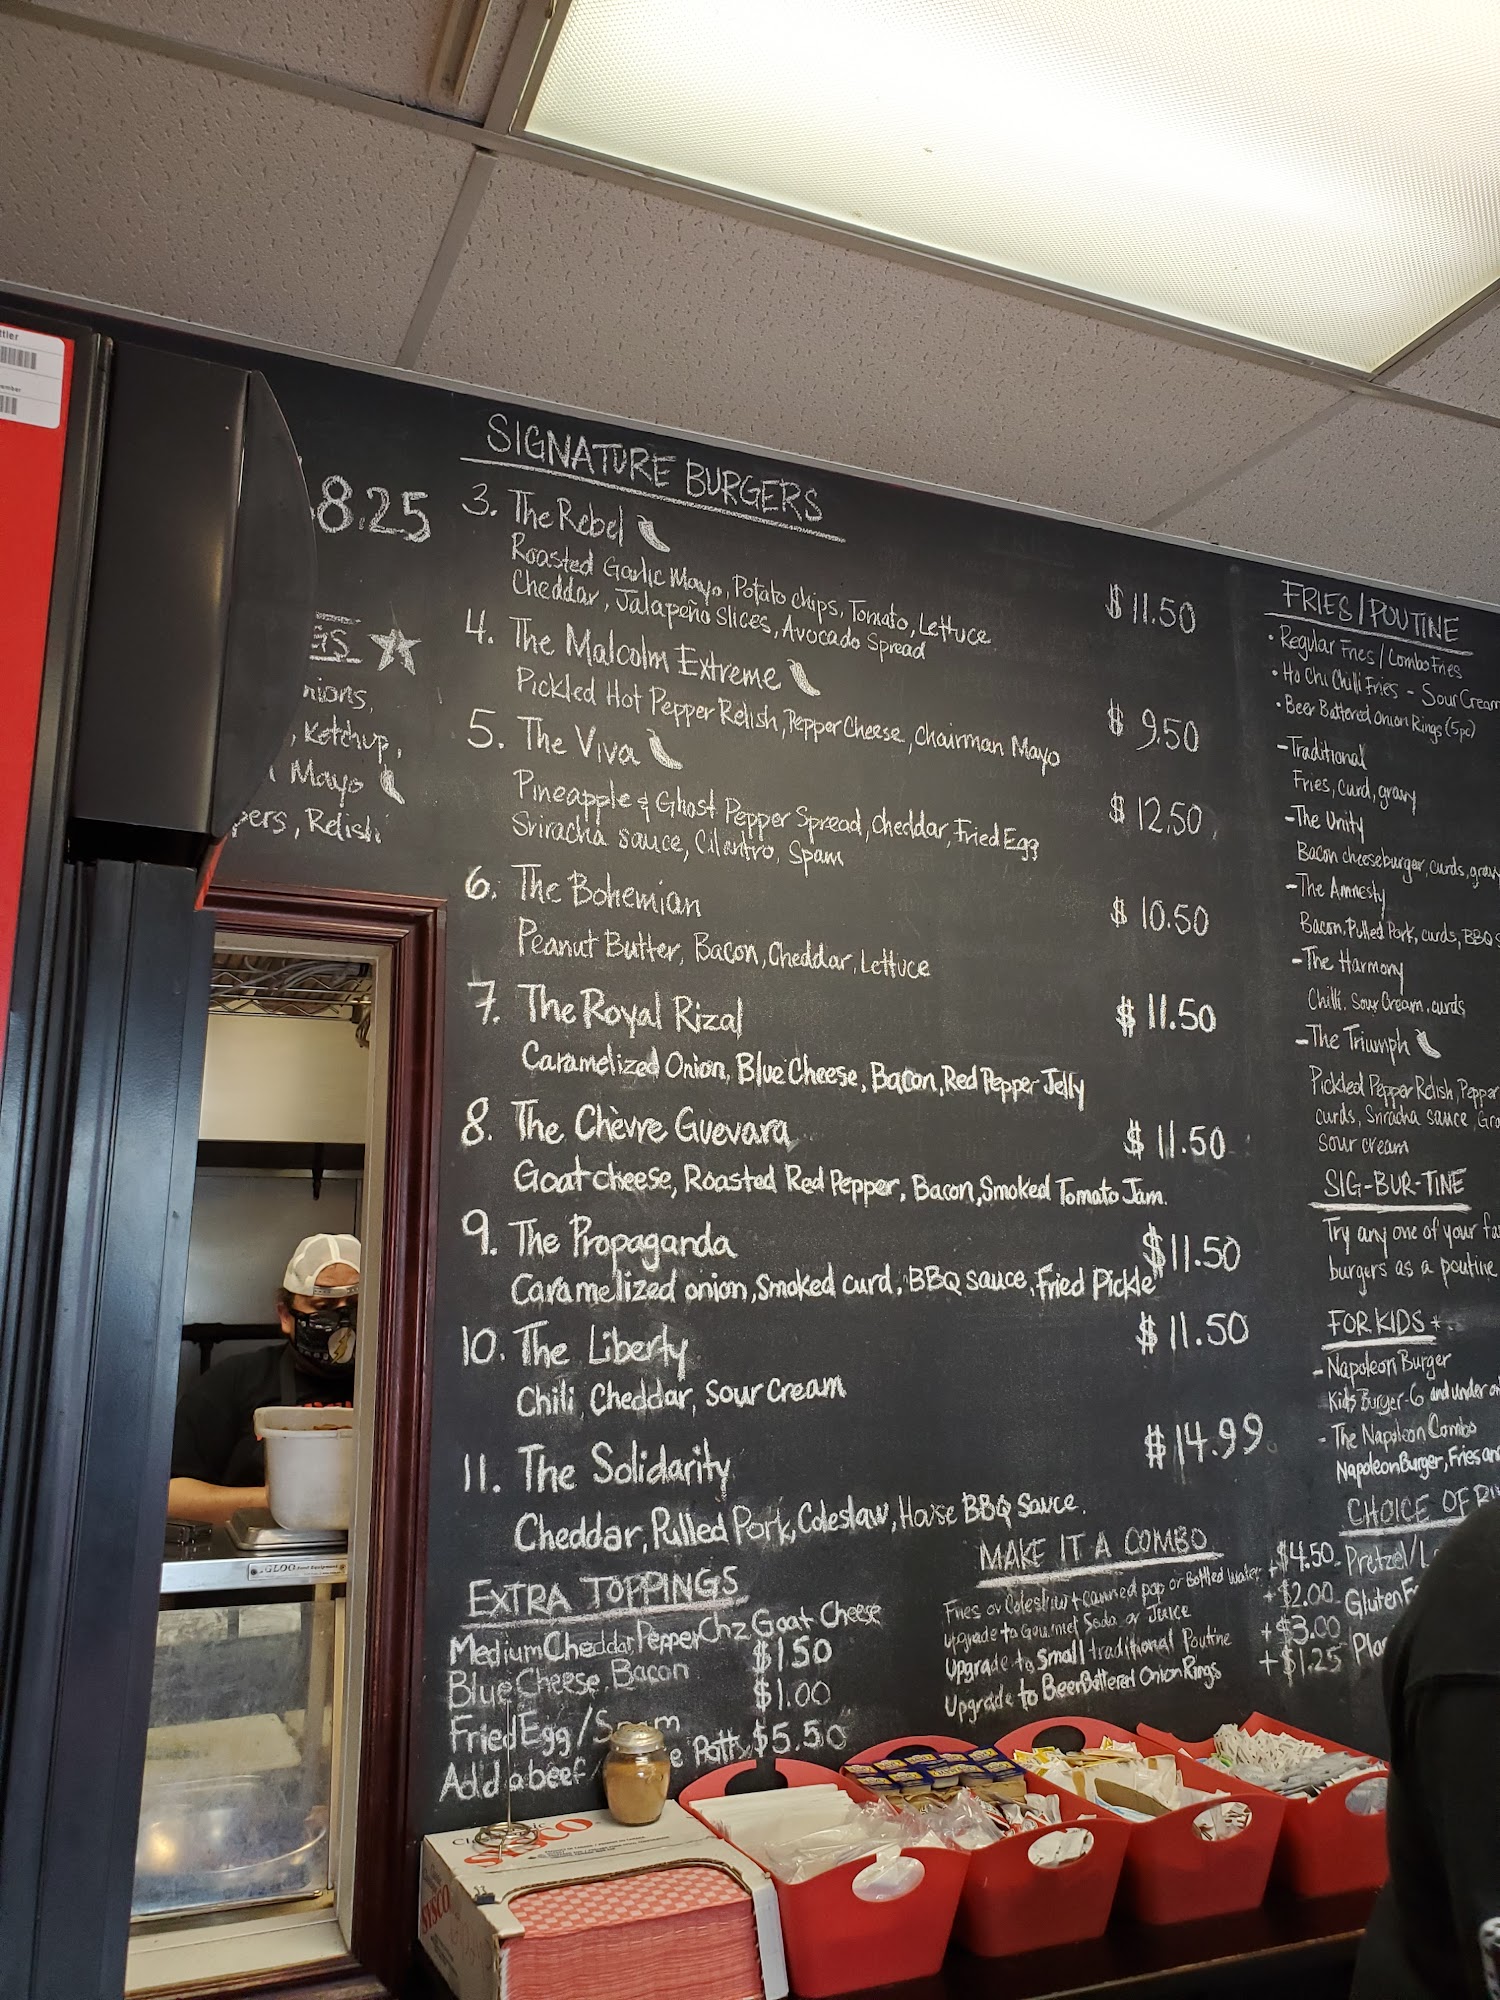 8.25
nions,
, Ketchup,
Mayo
pers, Relish
SIGNATURE BURGERS
3. The Rebel
$11.50
Roasted Garlic Mayo, Potato chips, Tomato, Lettuce
Cheddar, Jalapeño slices, Avocado Spread
4. The Malcolm Extreme
$9.50
Pickled Hot Pepper Relish, Pepper Cheese, Chairman Mayo
5. The Viva
$12.50
Pineapple & Ghost Pepper Spread, Cheddar, Fried Egg
Sriracha sauce, Cilantro, Spam
6. The Bohemian
$10.50
Peanut Butter, Bacon, Cheddar, Lettuce
7. The Royal Rizal
$11.50
Caramelized Onion, Blue Cheese, Bacon, Red Pepper Jelly
8. The Chèvre Guevara
$11.50
Goat cheese, Roasted Red Pepper, Bacon, Smoked Tomato Jam.
9. The Propaganda
$11.50
Caramelized onion, Smoked curd, BBQ sauce, Fried Pickle
10. The Liberty
$11.50
Chili, Cheddar, Sour Cream
11. The Solidarity
$14.99
Cheddar, Pulled Pork, Coleslaw, House BBQ Sauce.
EXTRA TOPPINGS
Medium Cheddar, Pepper Chz Goat Cheese
Blue Cheese, Bacon $1.50
Fried Egg / $1.00
Add a beef Patty $5.50
MAKE IT A COMBO
Fries or Coleslaw + canned pop or Bottled water +$4.50
upgrade to Gourmet Soda or Juice +$2.00
Upgrade to small traditional Poutine +$3.00
Upgrade to Beer Battered Onion Rings +$1.25
FRIES/POUTINE
• Regular Fries / Combo Fries
• Ho Chi Chilli Fries - Sour Cream
• Beer Battered Onion Rings (5pc)
- Traditional
Fries, curd, gravy
- The Unity
Bacon cheeseburger, curds, gravy
- The Amnesty
Bacon, Pulled Pork, curds, BBQ
- The Harmony
Chilli, Sour Cream, curds
- The Triumph
Pickled Pepper Relish, Pepper
curds, Sriracha sauce, Gra
Sour cream
SIG-BUR-TINE
Try any one of your fa
burgers as a poutine
FOR KIDS *
- Napoleon Burger
Kids Burger-6 and under
- The Napoleon Combo
Napoleon Burger, Fries an
CHOICE OF
Pretzel/L
Gluten F
SYSCO
SYSCO
GLOO